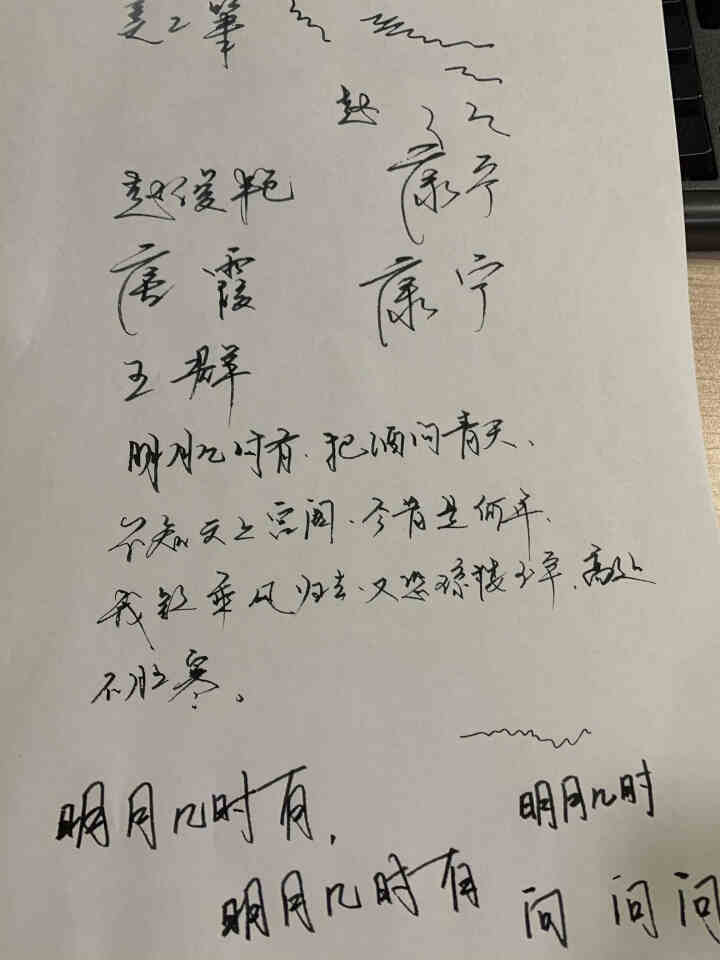 美工筆
赵
赵俊艳
康宁
唐霞
康宁
王群
明月几时有、把酒问青天、
不知天上宫阁、今昔是何年、
我欲乘风归去、又恐琼楼玉宇、高处
不胜寒。
明月几时有，
明月几时
明月几时有
问 问 问